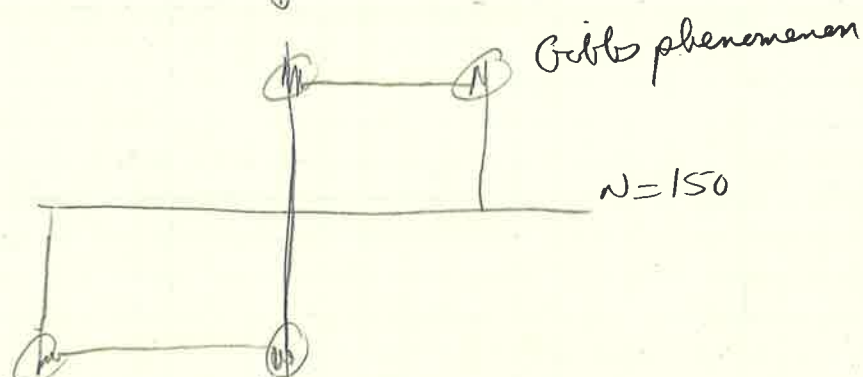 Gibbs phenomenon
N=150